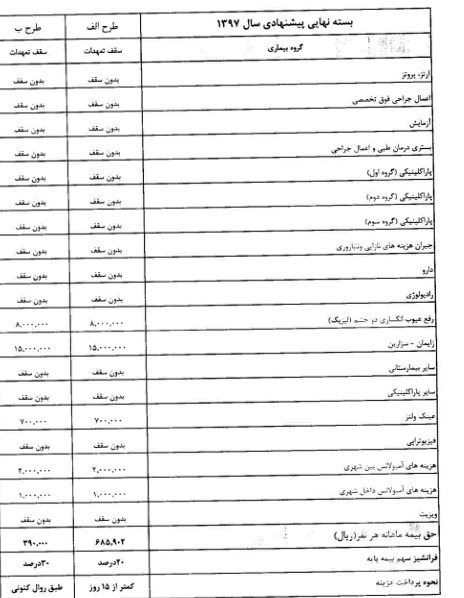 بسته نهایی پیشنهادی سال ۱۳۹۷ طرح الف طرح ب
گروه بیماری سقف تعهدات سقف تعهدات
ارتز، پروتز بدون سقف بدون سقف
اعمال جراحی فوق تخصصی بدون سقف بدون سقف
آزمایش بدون سقف بدون سقف
بستری درمان طبی و اعمال جراحی بدون سقف بدون سقف
پاراکلینیکی (گروه اول) بدون سقف بدون سقف
پاراکلینیکی (گروه دوم) بدون سقف بدون سقف
پاراکلینیکی (گروه سوم) بدون سقف بدون سقف
جبران هزینه های نازایی وناباروری بدون سقف بدون سقف
دارو بدون سقف بدون سقف
رادیولوژی بدون سقف بدون سقف
رفع عیوب انکساری دو چشم (لیزیک) ۸,۰۰۰,۰۰۰ ۸,۰۰۰,۰۰۰
زایمان - سزارین ۱۵,۰۰۰,۰۰۰ ۱۵,۰۰۰,۰۰۰
سایر بیمارستانی بدون سقف بدون سقف
سایر پاراکلینیکی بدون سقف بدون سقف
عینک ولنز ۷۰۰,۰۰۰ ۷۰۰,۰۰۰
فیزیوتراپی بدون سقف بدون سقف
هزینه های آمبولانس بین شهری ۲,۰۰۰,۰۰۰ ۲,۰۰۰,۰۰۰
هزینه های آمبولانس داخل شهری ۱,۰۰۰,۰۰۰ ۱,۰۰۰,۰۰۰
ویزیت بدون سقف بدون سقف
حق بیمه ماهانه هر نفر(ریال) ۶۸۵,۹۰۲ ۳۹۰,۰۰۰
فرانشیز سهم بیمه پایه ۲۰درصد ۳۰درصد
نحوه پرداخت هزینه کمتر از ۱۵ روز طبق روال کنونی